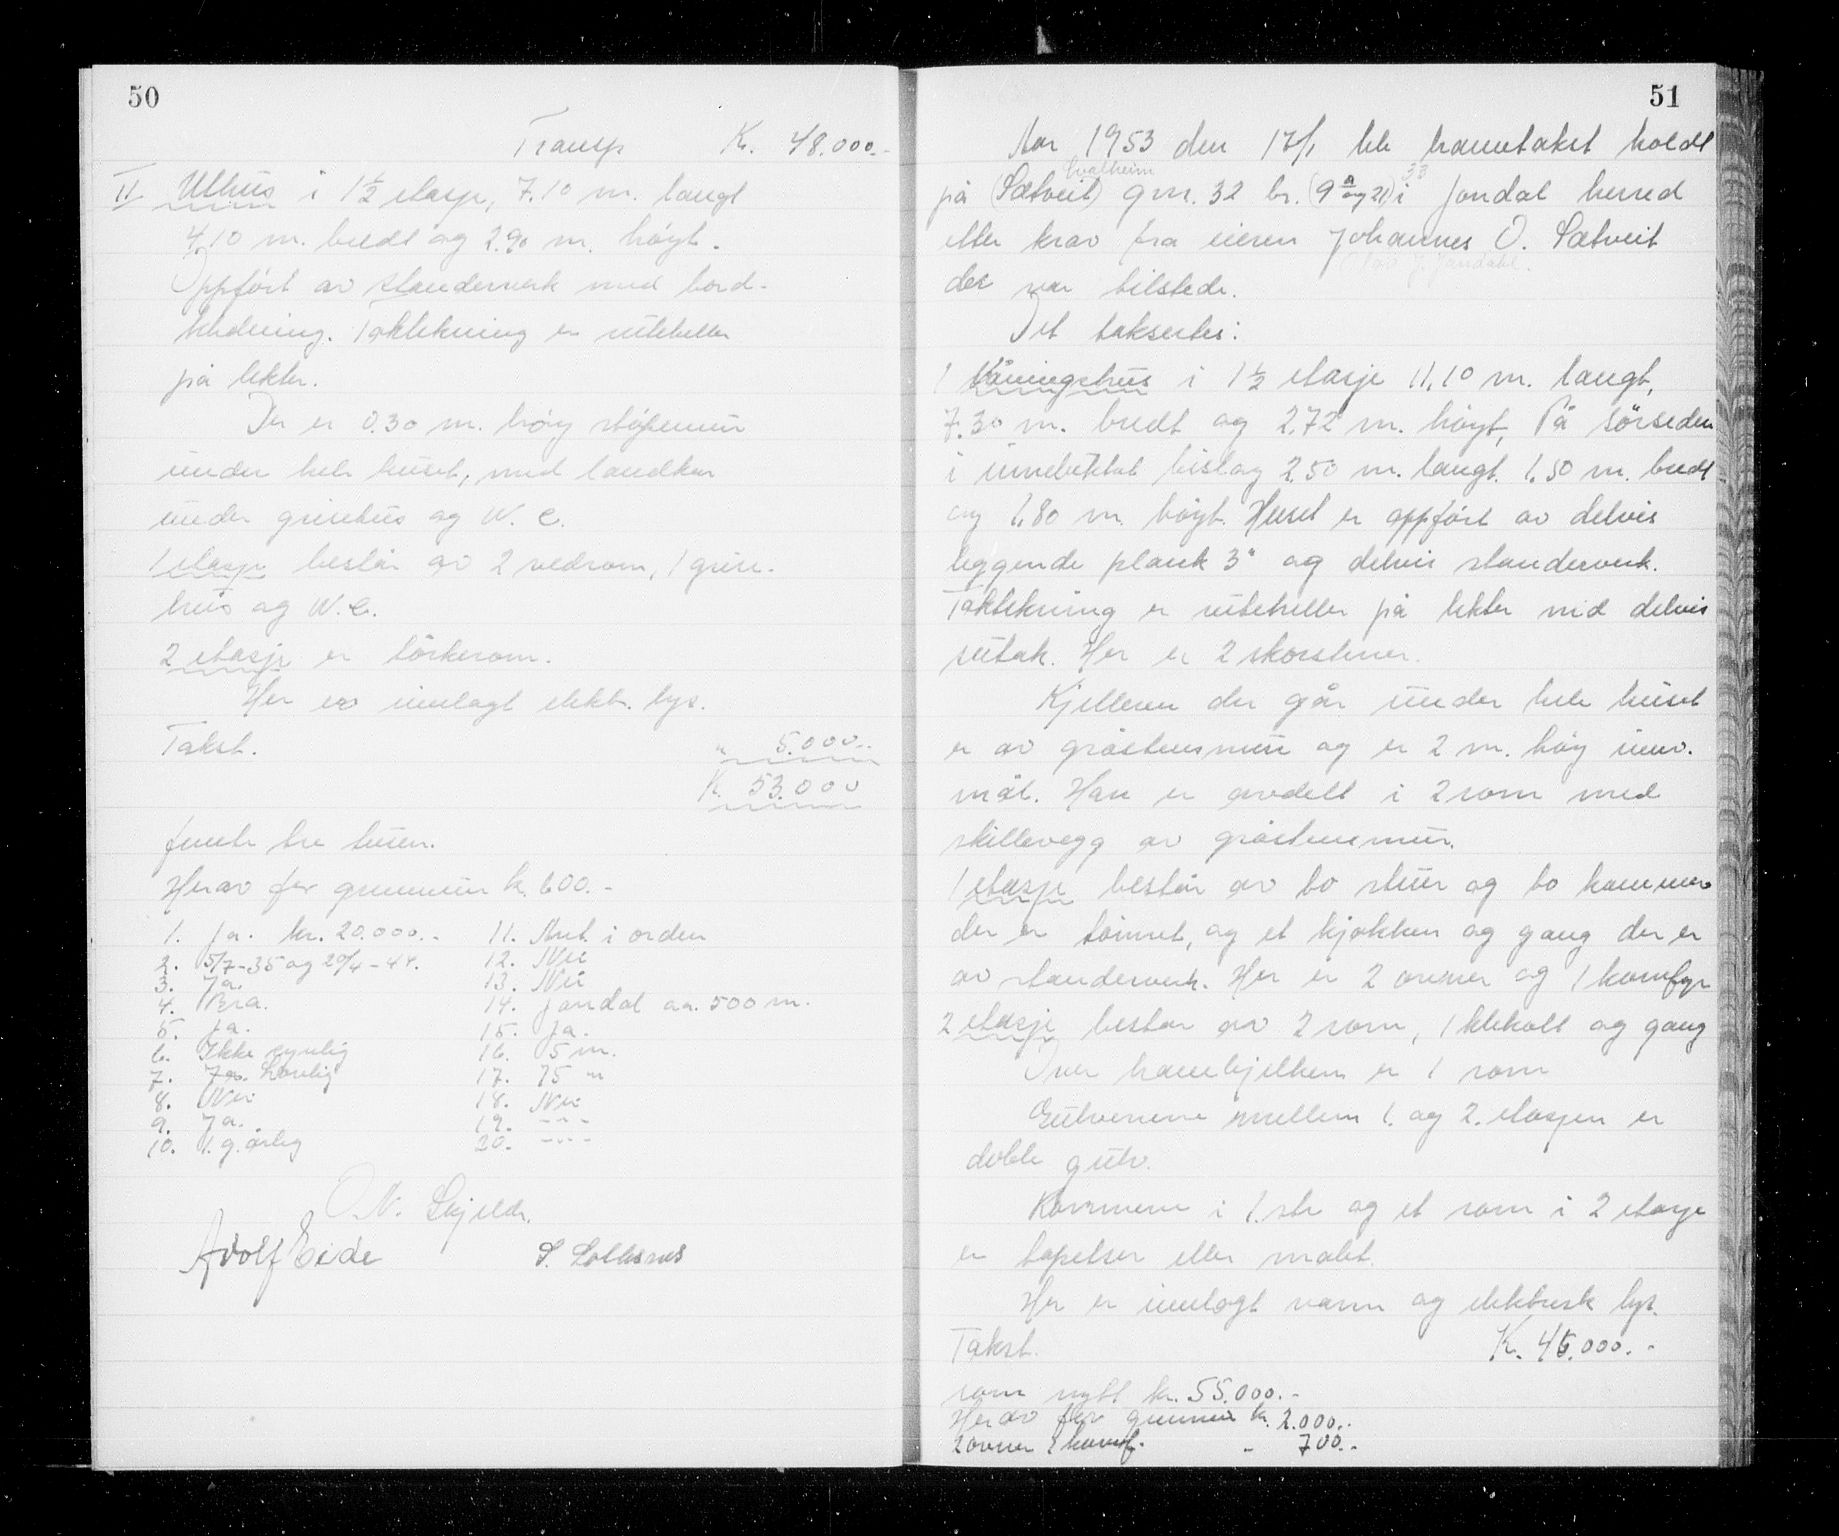 50
Transp K. 48.000.-
II Uthus i 1½ etasje, 7.10 m. langt
4,10 m. bredt og 2.90 m. høyt.
Oppført av standerverk med bord-
kledning. Taktekning er ruteheller
på lekter.
Der er 0.30 m. høy støpemur
under hele huset, med landkar
under grisehus og W.C.
1 etasje består av 2 vedrom, 1 grise-
hus og W.C.
2 etasje er törkerom.
Her er innlagt elekt. lys.
Takst. " 5.000.-
K. 53.000
femti tre tusen.
Herav for grunnmur k. 600.-
1. Ja. kr. 20.000.-
2. 5/7-35 og 20/4-44.
3. Ja.
4. Bra.
5. Ja.
6. Ikke synlig
7. Lovlig
8. Nei
9. Ja.
10. 1 g. årlig
11. Ant. i orden
12. Nei
13. Nei
14. Jondal ca. 500 m.
15. Ja.
16. 5 m.
17. 75 m
18. Nei
19. -"-
20. -"-
O.N. Skjeldr.
Adolf Eide S. Solesnes
51
Aar 1953 den 17/1 ble branntakst holdt
Solheim 33
på (Sætveit) gnr. 32 br. (9 a og 21) i Jondal herred
etter krav fra eieren Johannes O. Sætveit
Jondahl.
der var tilstede.
Det taksertes:
1 Våningshus i 1½ etasje 11,10 m. langt,
7.30 m. bredt og 2.72 m. høyt, På sörsiden
i innebyktet bislag 2.50 m. langt. 1.50 m. bredt
og 1,80 m. høyt. Huset er oppført av delvis
liggende plank 3" og delvis standerverk.
Taktekning er ruteheller på lekter med delvis
sutak. Her er 2 skorstener.
Kjelleren der går under hele huset
er av gråstensmur og er 2 m. høy innv.
mål. Han er avdelt i 2 rom med
skillevegg av gråstensmur.
1 etasje består av to stuer og to kammer
der er tömret, og et kjøkken og gang der er
av standerverk. Her er 2 ovner og 1 komfyr
2 etasje består av 2 rom, 1 klekott og gang
Over hanebjelken er 1 rom
Gulvene mellem 1. og 2. etasjen er
doble gulv.
Rommene i 1.ste og et rom i 2 etasje
er tapetser eller malet.
Her er innlagt vann og elektrisk lys.
Takst. K. 45.000.-
som nytt kr. 55.000.-
Herav for grunnmur k. 2.000.-
2 ovner 1 komf. - 700.-